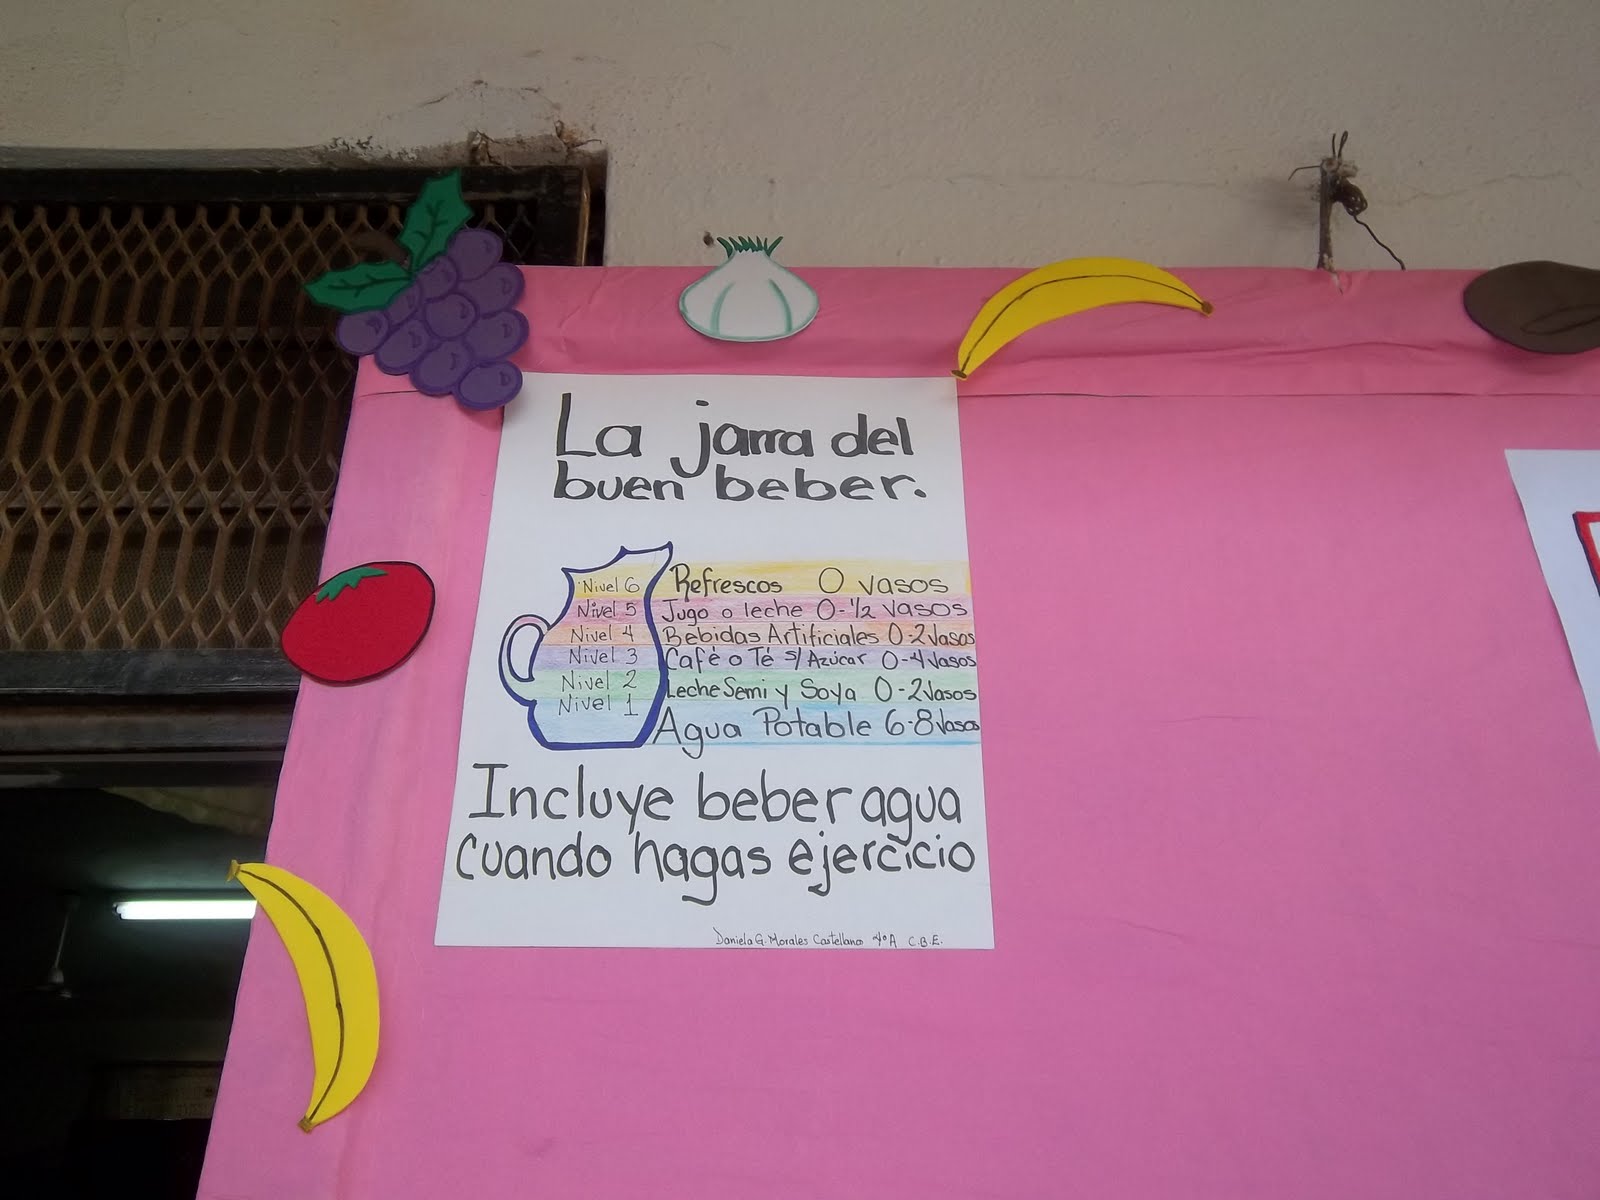 La jarra del
buen beber.
Nivel 6 Refrescos 0 vasos
Nivel 5 Jugo o leche 0-1/2 vasos
Nivel 4 Bebidas Artificiales 0-2 Vasos
Nivel 3 Café o Té s/ Azúcar 0-4 Vasos
Nivel 2 Leche Semi y Soya 0-2 Vasos
Nivel 1 Agua Potable 6-8 Vasos
Incluye beber agua
cuando hagas ejercicio
Daniela G. Morales Castellano 4°A C.B.E.